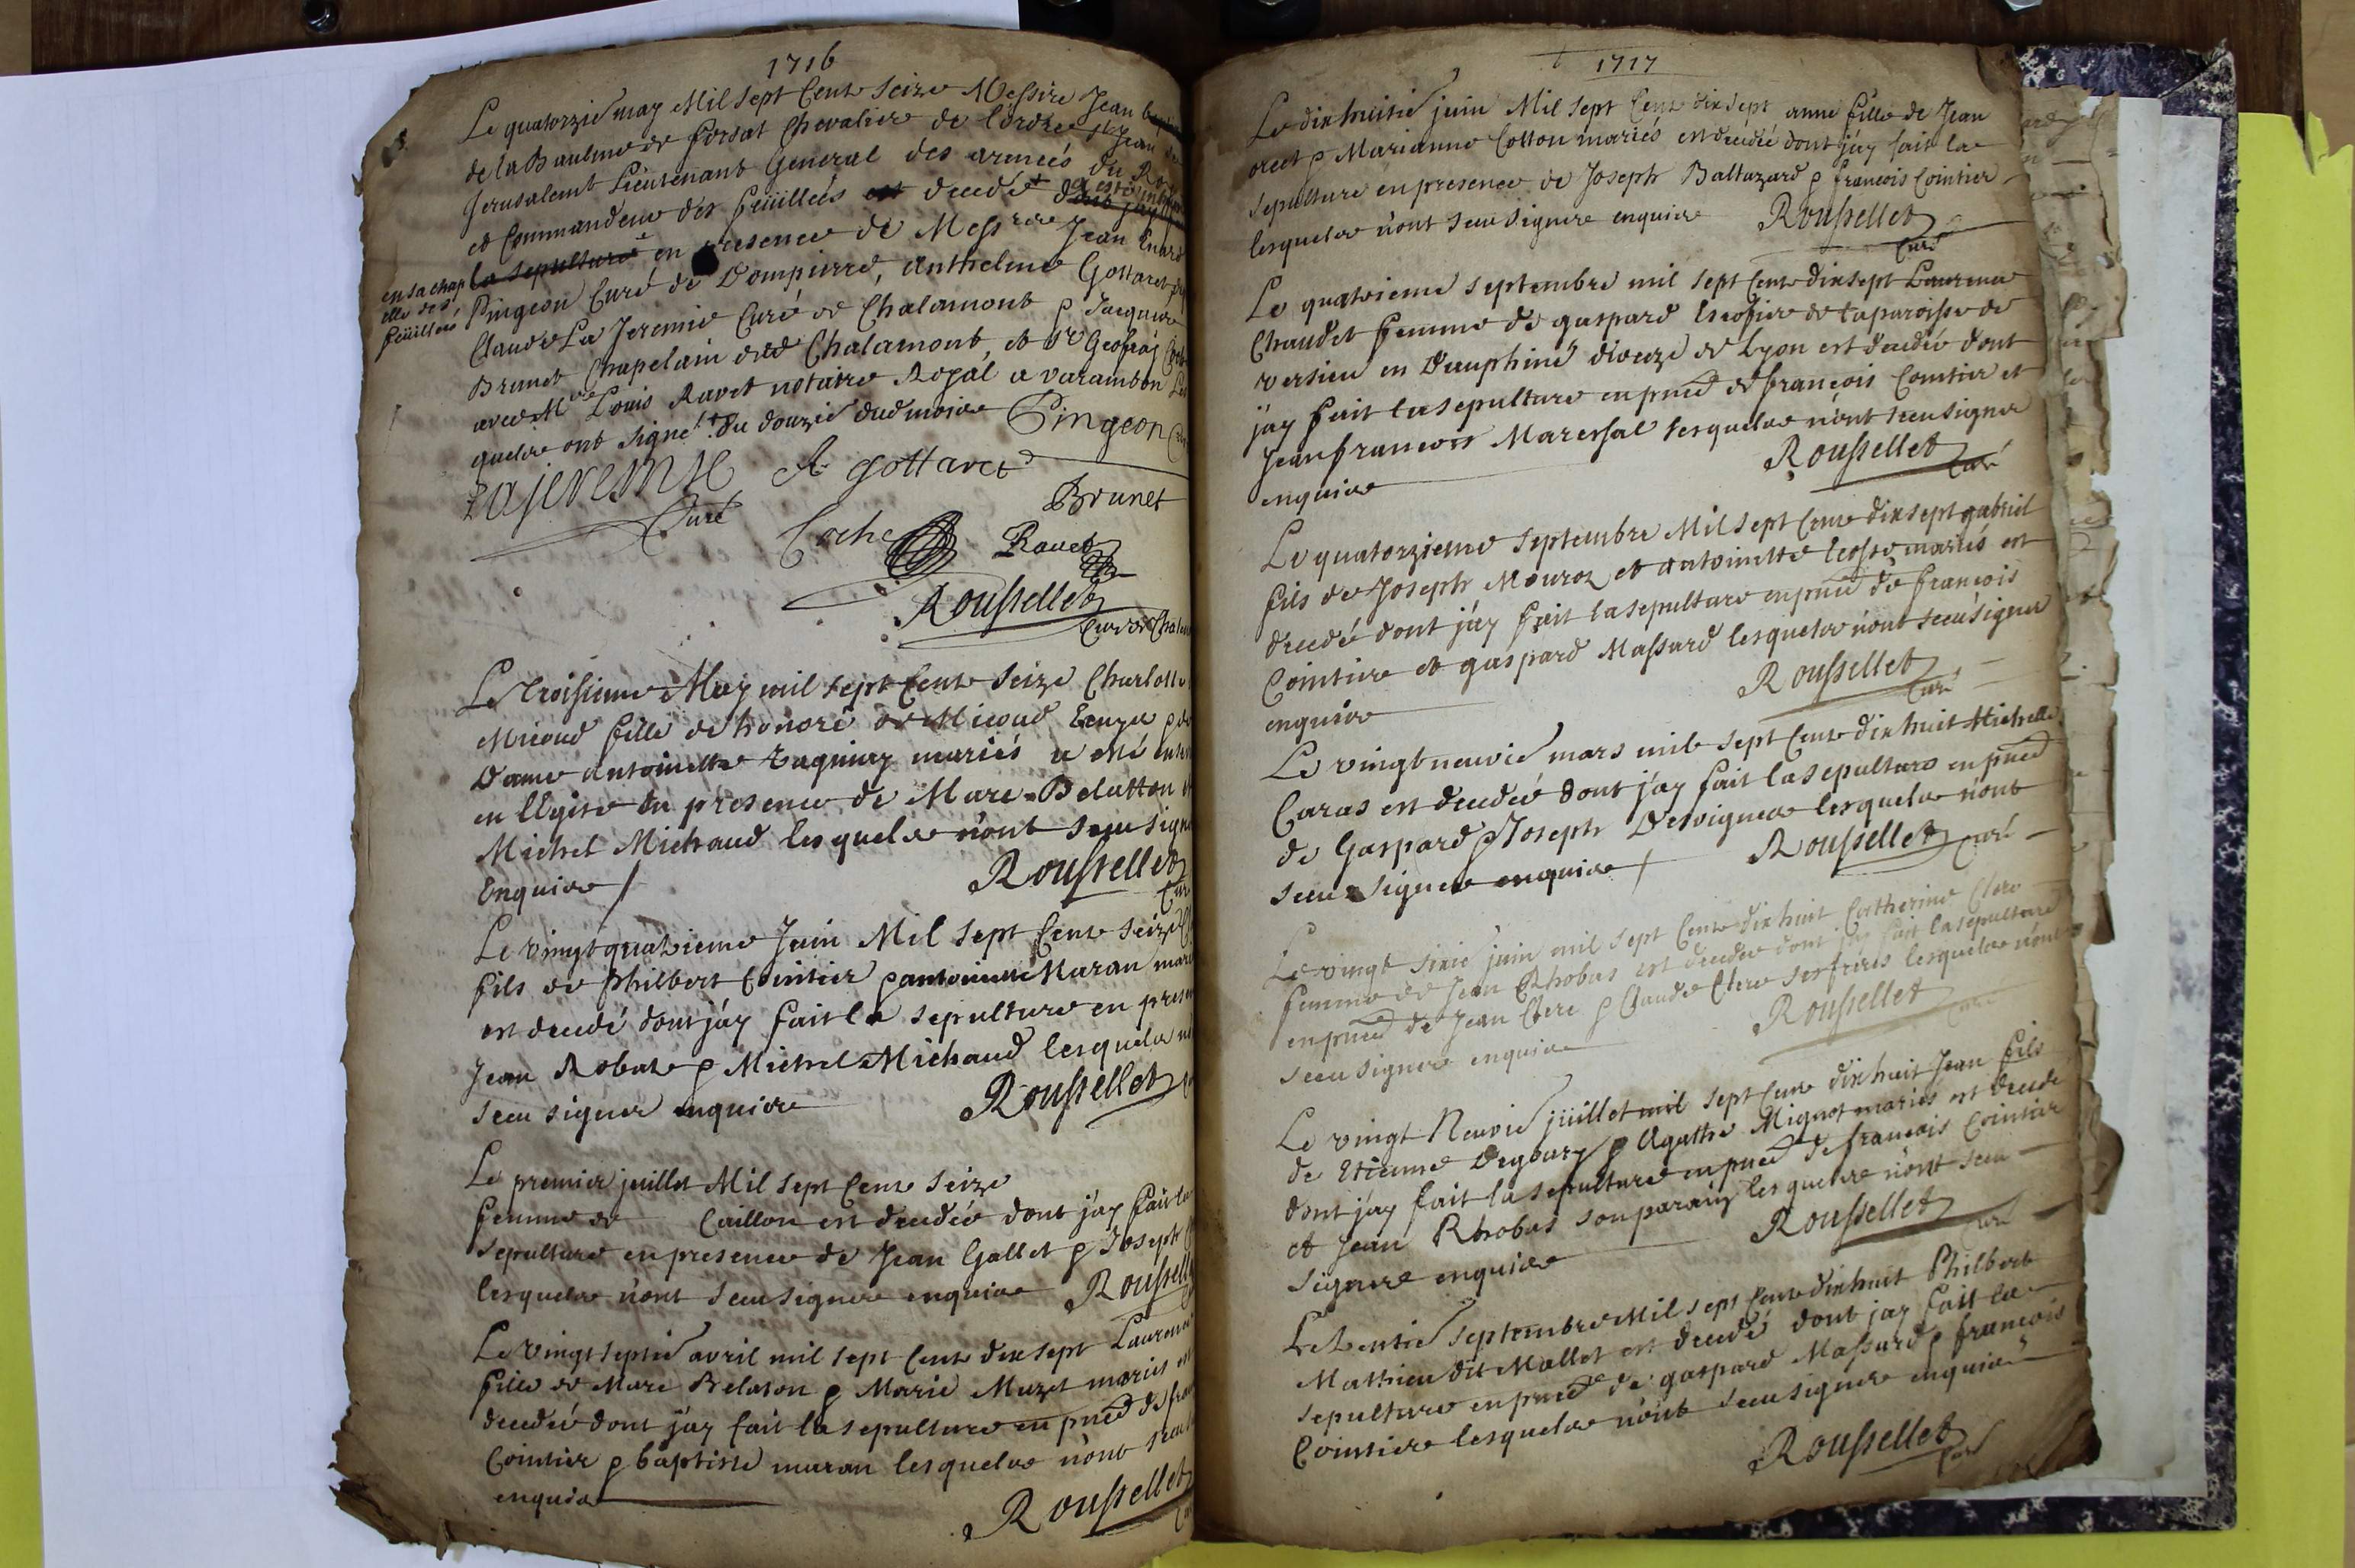 1716
Le quatorzie may Mil sept Cent Seize Messire Jean
de la Baulme de forsat Chevalier de l'ordre St Jean de
Jerusalem Lieutenant General des armeés du Roy
et Commandeur des feüilleés est decedé
la sepulture en presence de Messire Jean
en sa chap
elle des
feüilleés
Pingeon Curé de Dompierre, Anthelme Gottaret
Claude La Jeremie Curé de Chalamont p Jacques
Brunet Chapelain dud Chalamont, et Sr Geofray
avec Mre Louis Ravet notaire Royal a varambon Les
quelse ont signé du douzie dud moise Pingeon
Lajeremie A Gottaret
Curé Brunet
Coche Ravet
Roussellet
Curé de Chalam
Le troisieme May mil sept Cent Seize Charlotte
Micoud fille de honoré de Micoud p de
Dame Antoinette taguiny mariés a eté
en l'Eglise en presence de Marc Belatton
Michel Michaud lesquelse n'ont sceu signe
Enquise / Roussellet
Le vingt quatrieme Juin Mil Sept Cent Seize
fils de Philbert Cointier p antoinette Maran mari
est decedé dont j'ay fait la sepulture en prese
Jean Robate p Michel Michaud lesquelse n
sceu signer enquise Roussellet
Le premier juillet Mil sept Cent Seize
femme de Caillon est decedeé dont j'ay fait la
Sepulture en presence de Jean Gallet p Joseph
lesquelse n'ont sceu signer enquise Roussell
Le vingt septie avril mil sept Cent dix sept Laurence
fille de Marc Belaton p Marie Muzet mariés
decedeé dont j'ay fait la sepulture en pnce de fra
Cointier p baptiste maran lesquelse n'ont sceu
enquise Roussellet
1717
Le dix huitie juin Mil sept Cent dix sept anne fille de Jean
p Marianne Cotton mariés est decedeé dont j'ay fait la
sepulture en presence de Joseph Baltazard p francois Cointier
lesquelse n'ont sceu signer enquise Roussellet
Curé
Le quatrieme septembre mil sept Cent dix sept Laurence
Chaudet femme de gaspard Lescofier de la paroisse de
versieu en Dauphiné dioceze de Lyon est decedeé dont
j'ay fait la sepulture en pnce de francois Cointier et
Jean francois Maressal lesquelse n'ont sceu signer
enquise Roussellet
Curé
Le quatorzieme Septembre Mil sept Cent dix sept gabriel
fils de Joseph Mouroz et antoinette mariés est
decedé dont j'ay fait la sepulture en pnce de francois
Cointier et gaspard Massard lesquelse n'ont sceu signer
enquise Roussellet
Curé
Le vingt neuvie mars mil sept Cent dix huit Michelle
Caras est decedeé dont j'ay fait la sepulture en pnce
de Gaspard p Joseph Desvignes lesquelse n'ont
sceu signer enquise / Roussellet Curé
Le vingt sixie juin mil sept Cent dix huit Catherine Clere
femme de Jean Rhobas est decedeé dont j'ay fait la sepulture
en pnce de Jean Clere p Claude Clere ses freres lesquelse n'ont
sceu signer enquise Roussellet
Le vingt Neuvie juillet mil sept Cent dix huit Jean fils
de Etienne Degbury p Agathe Mignot mariés est decedé
dont j'ay fait la sepulture en pnce de francois Cointier
et Jean Rhobas son parain lesquelse n'ont sceu
signer enquise Roussellet Curé
Le trentie septembre Mil sept Cent dix huit Philbert
Mathieu dit Mallet est decedé dont j'ay fait la
sepulture en pnce de gaspard Massard p francois
Cointier lesquelse n'ont sceu signer enquise
Roussellet
Curé